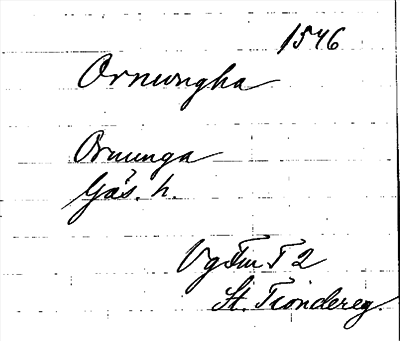 1546
Ornungha
Ornunga
Gäs. h.
Vg Fru F 2
St. Tiondereg.